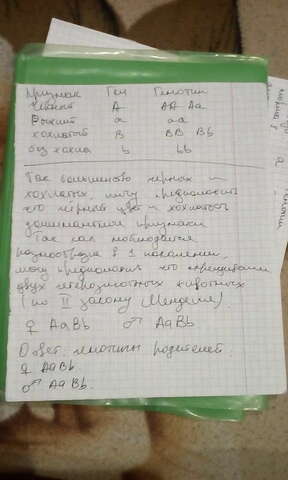 Признак Ген Генотип
Чёрный A AA Aa
Рыжий a aa
хохлатый B BB Bb
без хохла b bb
Так большинство чёрных и
хохлатых, могу предположить
что чёрный цвет и хохлатость
доминантные признаки
Так как наблюдается
разнообразие в 1 поколении,
могу предположить что скрещивали
двух гетерозиготных животных
(по II закону Менделя).
♀ AaBb ♂ AaBb
Ответ: генотипы родителей:
♀ AaBb
♂ AaBb.